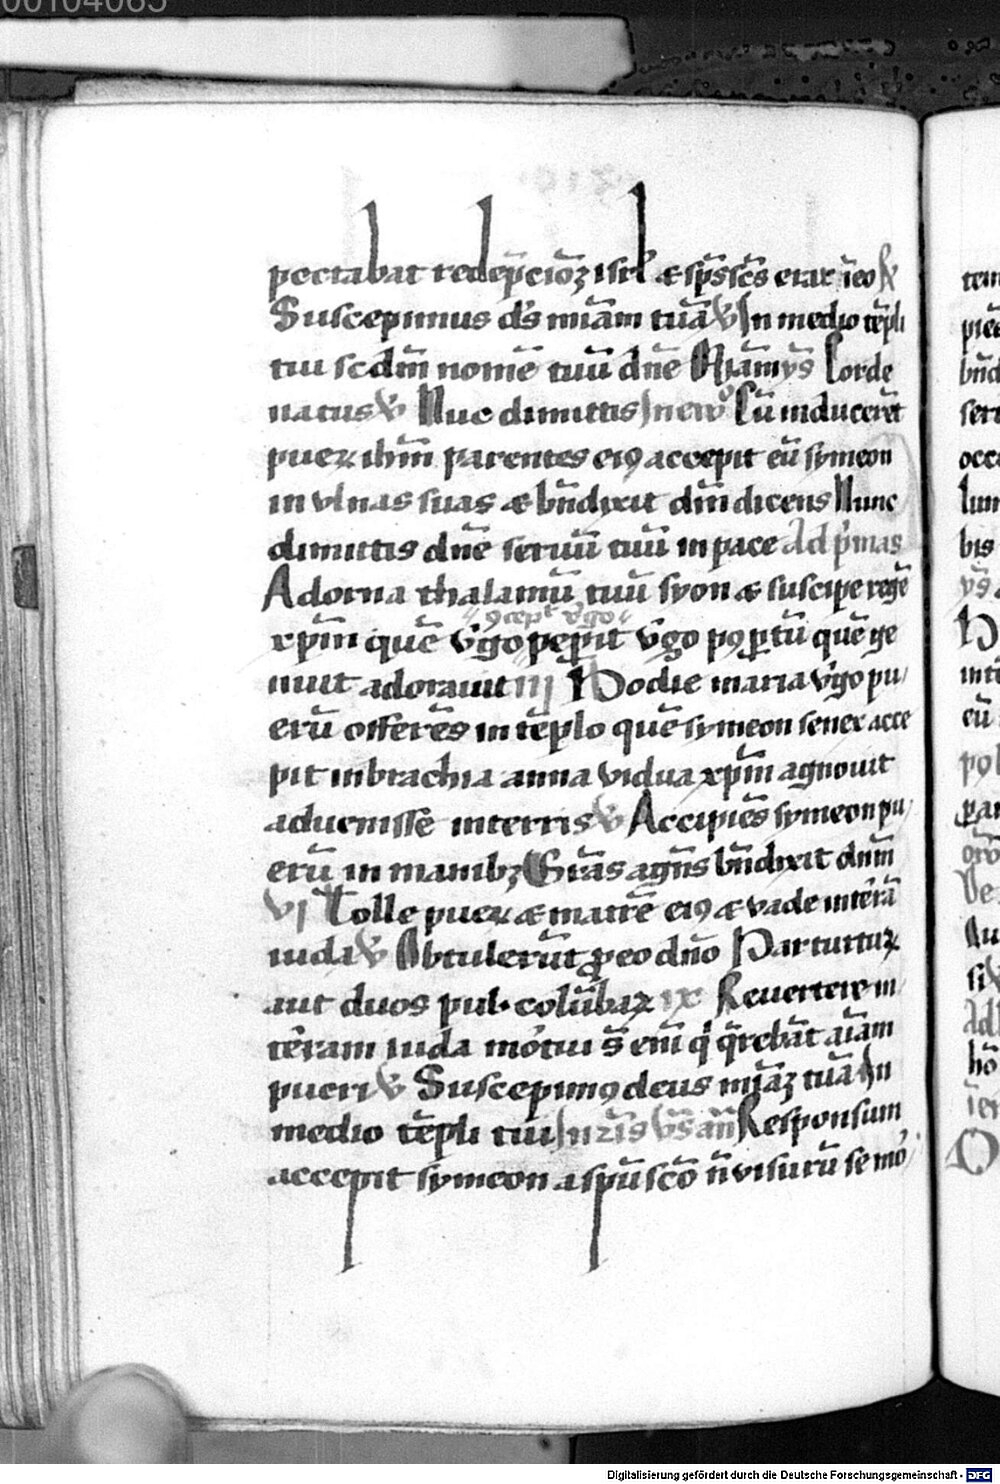 00104065
pectabat redēpcōꝫ isrl̄ & sp̄s sc̄s erat ī eo
Suscepimus ds̄ miām tuā ℣ In medio tēpli
tui scdm̄ nomē tuū dn̄e Corde
natus ℣ Nūc dimittis In euo Cū inducerēt
pueꝝ ihm̄ parentes eiꝰ accepit eū symeon
in vlnas suas & bn̄dixit dm̄ dicens Nunc
dimittis dn̄e seruū tuū in pace Ad p̄mas
Adorna thalamū tuū syon & suscipe regē
ꝯcept v̄go
xp̄m quē v̄go pep̄it v̄go pꝰ ꝑtū quē ge
nuit adorauit iij Hodie maria v̄go pu/
erū offerēs in tēplo quē symeon senex acce
pit in brachia anna vidua xp̄m agnouit
aduenisse in terris ℣ Accipiēs symeon pu/
erū in manibꝫ Grās agn̄s bn̄dixit dnm̄
vi Tolle pueꝝ & matrē eiꝰ & vade in terā
iuda ℣ Obtulerūt ꝓ eo dn̄o Par turtuꝝ
aut duos pul. colūbaꝝ ix Reuertere in
teram iuda mortui s̄ enī q̄ q̄rebāt aīam
pueri ℣ Suscepimꝰ deus miāꝫ tuā In
medio tēpli tui In ii vris vs an̄ Responsum
accepit symeon a spū scō n̄ visurū se mo/
Digitalisierung gefördert durch die Deutsche Forschungsgemeinschaft - DFG